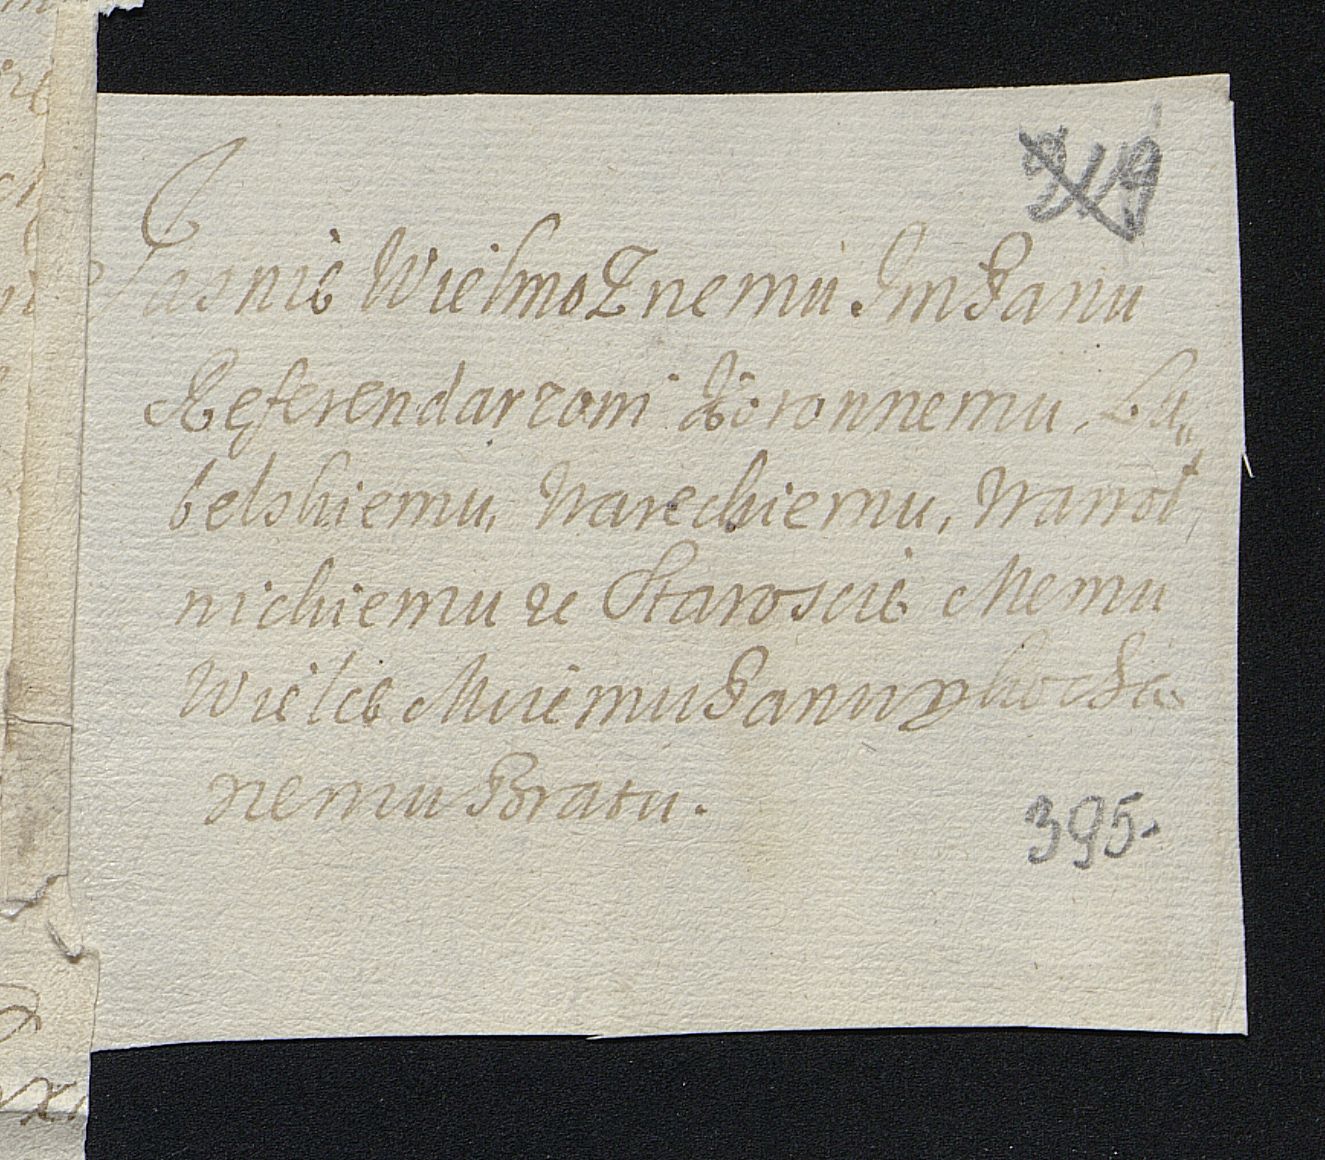 319
Jasnie WielmoZnemu Jm Panu
Referendarzowi Koronnemu, Lu„
belskiemu, Wareckiemu, Wawol„
nickiemu &c Staroscie Memu
Wielce Mciemu Panu y kocha„
nemu Bratu.
395.